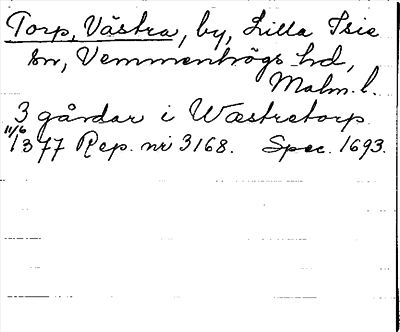 Torp, Västra, by, Lilla Isie
sn, Vemmenhögs hd,
Malm. l.
3 gårdar i Wæstretorp
11/6 1377 Rep. nr 3168. Spec. 1693.